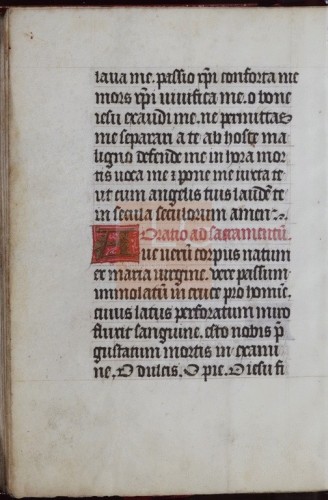 laua me. passio xpi conforta me
mors xpi viuifica me. o bone
iesu exaudi me. ne permittas
me separari a te ab hoste ma
ligno defende me in hora mor
tis uoca me ⁊ pone me iuxta te
vt cum angelis tuis laudē te
in secula seculorum amen
Oratio ad sacramentū.
Aue verum corpus natum
ex maria virgine. vere passum
immolatū in cruce pro homīe.
cuius latus perforatum miro
fluxit sanguine. esto nobis p̄
gustatum mortis in exami
ne. O dulcis. O pie. O iesu fi